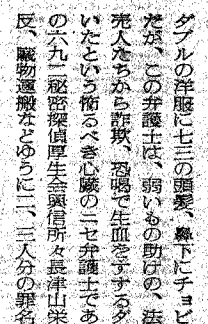 ダブルの洋服に七三の頭髪、鼻下にチョビ
だが、この弁護士は、弱いもの助けの、法
売人たちから詐欺、恐喝で生血をすするダ
いたという怖るべき心臓のニセ弁護士であ
の六九二秘密探偵厚生会興信所々長津山栄
反、贓物運搬などゆうに二、三人分の罪名